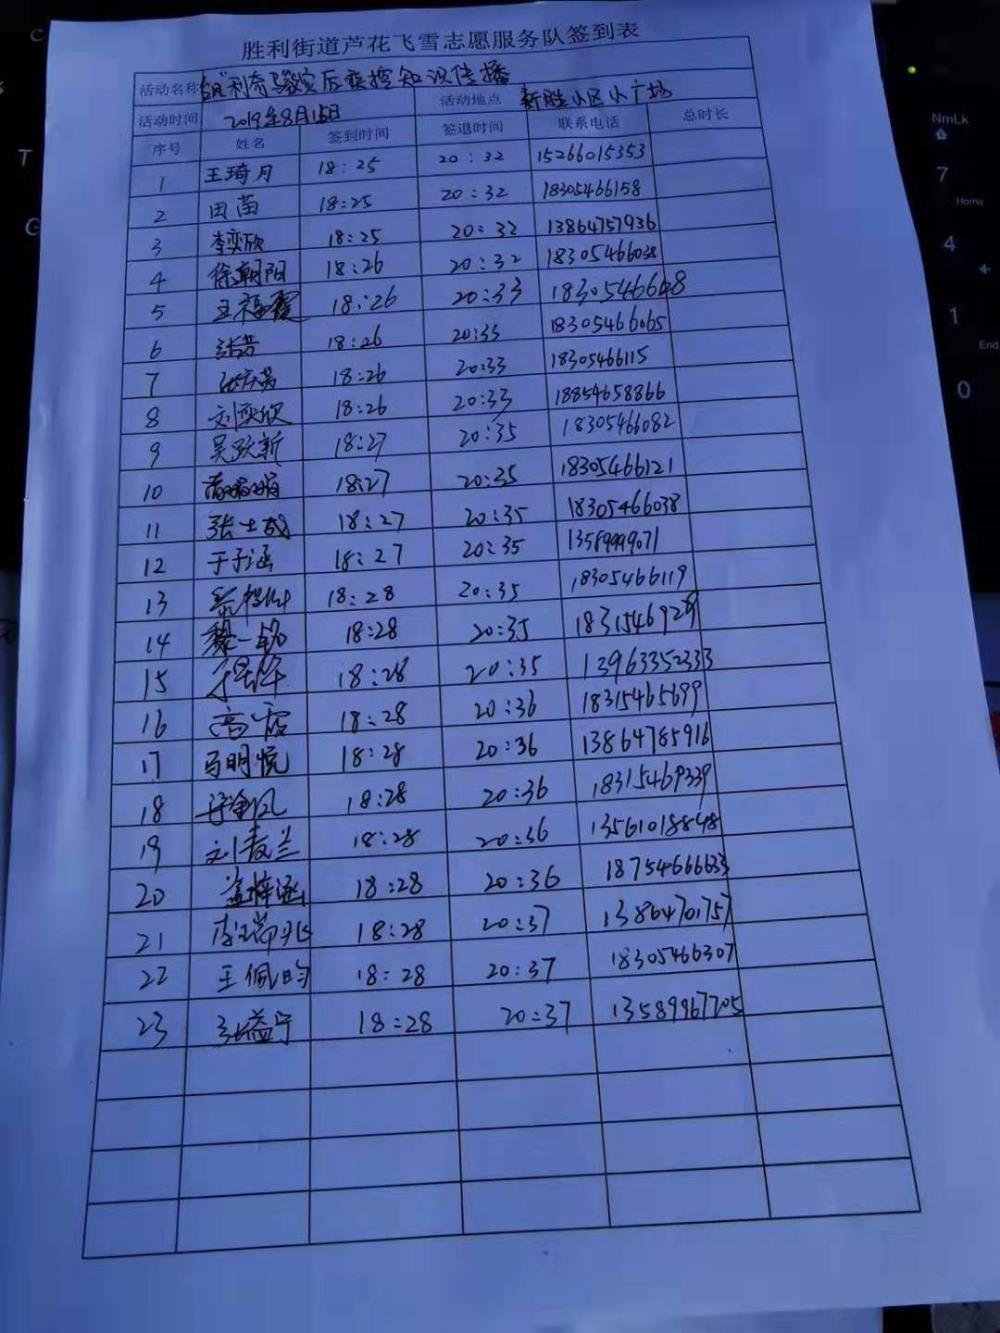 胜利街道芦花飞雪志愿服务队签到表
活动名称 "利奇马"灾后 知识传播
活动时间 2019年8月15日 活动地点 新胜小区小广场
序号 姓名 签到时间 签退时间 联系电话 总时长
1 王琦月 18:25 20:32 15266015353
2 田苗 18:25 20:32 18305466158
3 李奕欣 18:25 20:32 13864757936
4 徐朝阳 18:26 20:32 18305466038
5 王福霞 18:26 20:33
6 张芳 18:26 20:33 18305466065
7 18:26 20:33 18305466115
8 刘奕欣 18:26 20:33 18854658866
9 吴跃新 18:27 20:35 18305466082
10 18:27 20:35 18305466121
11 张士成 18:27 20:35 18305466038
12 于子涵 18:27 20:35 13589999071
13 18:28 20:35 18305466119
14 魏一铭 18:28 20:35
15 18:28 20:35 13963352333
16 高霞 18:28 20:36 18315465699
17 马明悦 18:28 20:36 13864785916
18 18:28 20:36 18315469339
19 刘麦兰 18:28 20:36 13561018848
20 孟梓涵 18:28 20:36 18754666633
21 李瑞兆 18:28 20:37 13864701757
22 王佩昀 18:28 20:37 18305466307
23 张益宁 18:28 20:37 13589967705
NmLk
7
Home
4
1
End
0
T
G
C